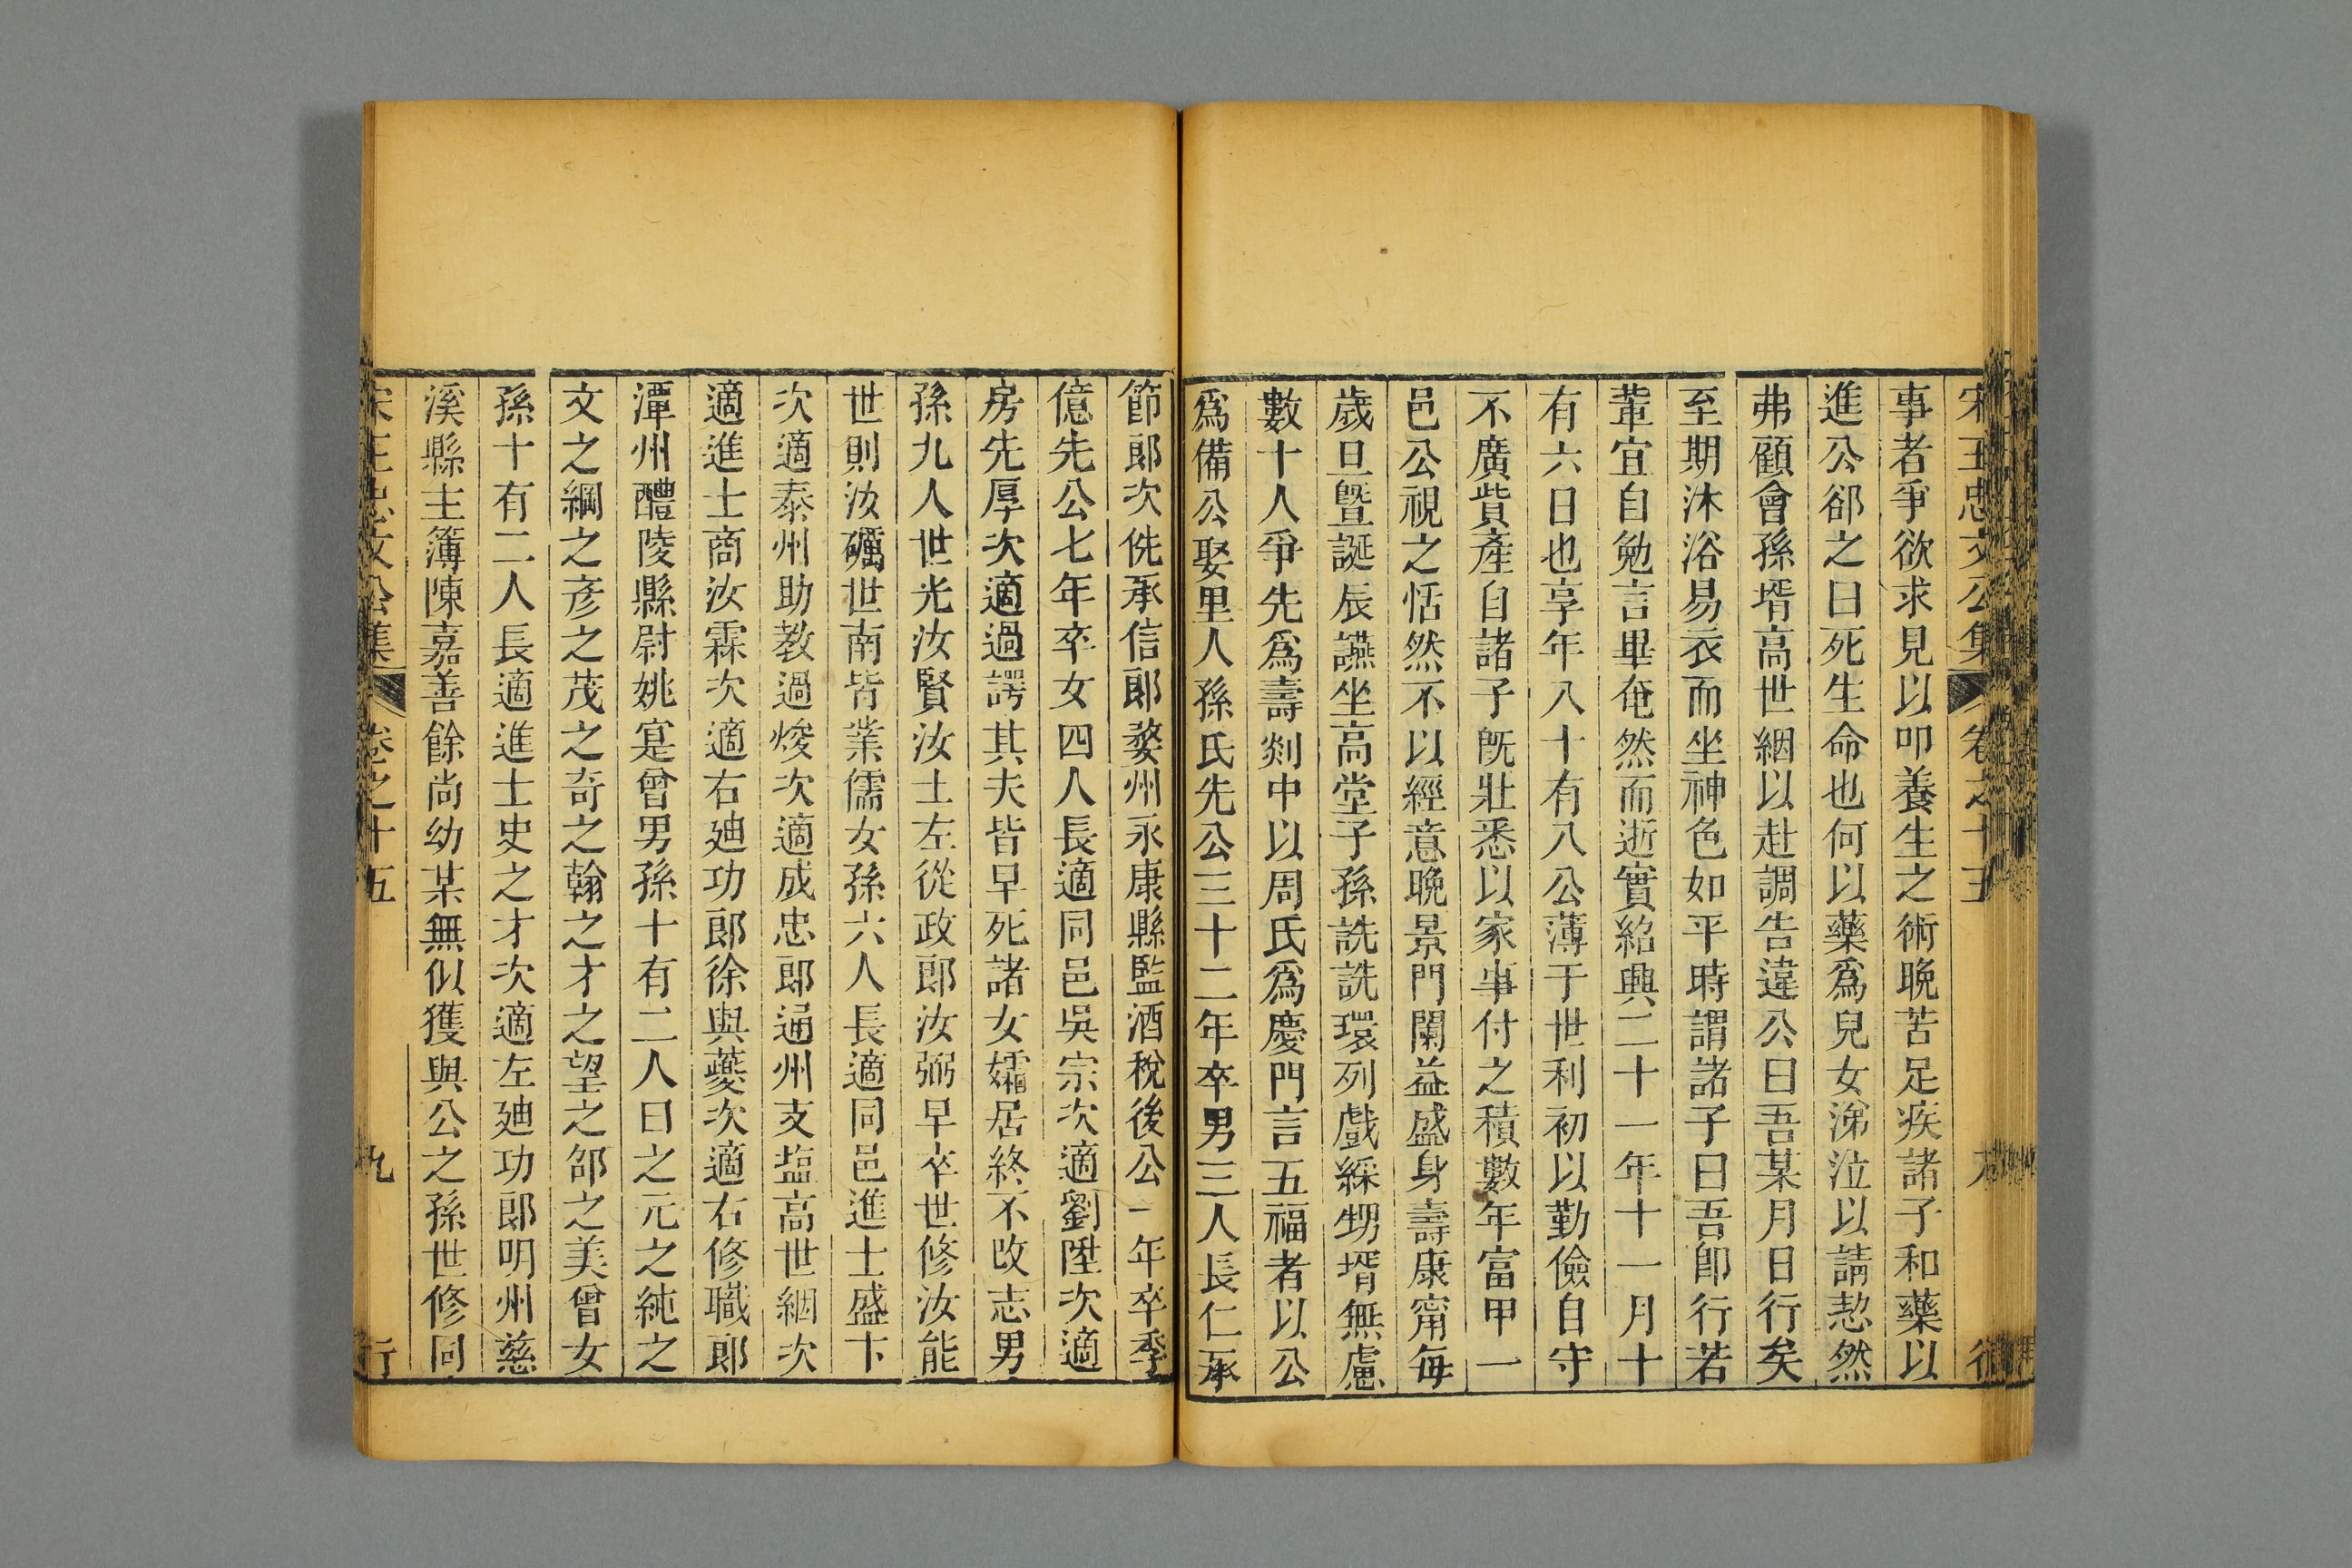 宋王忠文公集 卷之十五
事者爭欲求見以叩養生之術晚苦足疾諸子和藥以
進公卻之曰死生命也何以藥爲兒女涕泣以請恝然
弗顧會孫壻高世絪以赴調告違公曰吾某月日行矣
至期沐浴易衣而坐神色如平時謂諸子曰吾卽行若
輩宜自勉言畢奄然而逝實紹興二十一年十一月十
有六日也享年八十有八公薄于世利初以勤儉自守
不廣貲產自諸子旣壯悉以家事付之積數年富甲一
邑公視之恬然不以經意晚景門闌益盛身壽康甯每
歲旦曁誕辰讌坐高堂子孫詵詵環列戲綵甥壻無慮
數十人爭先爲壽剡中以周氏爲慶門言五福者以公
爲備公娶里人孫氏先公三十二年卒男三人長仁承
節郎次侁承信郎婺州永康縣監酒稅後公一年卒季
億先公七年卒女四人長適同邑吳宗次適劉陞次適
房先厚次適過諤其夫皆早死諸女孀居終不改志男
孫九人世光汝賢汝士左從政郎汝弼早卒世修汝能
世則汝礪世南皆業儒女孫六人長適同邑進士盛卞
次適泰州助教過焌次適成忠郎通州支塩高世絪次
適進士商汝霖次適右廸功郎徐與夔次適右修職郎
潭州醴陵縣尉姚寔曾男孫十有二人曰之元之純之
文之綱之彥之茂之奇之翰之才之望之邵之美曾女
孫十有二人長適進士史之才次適左廸功郎明州慈
溪縣主簿陳嘉善餘尚幼某無似獲與公之孫世修同
宋王忠文公集 卷之十五 九 行